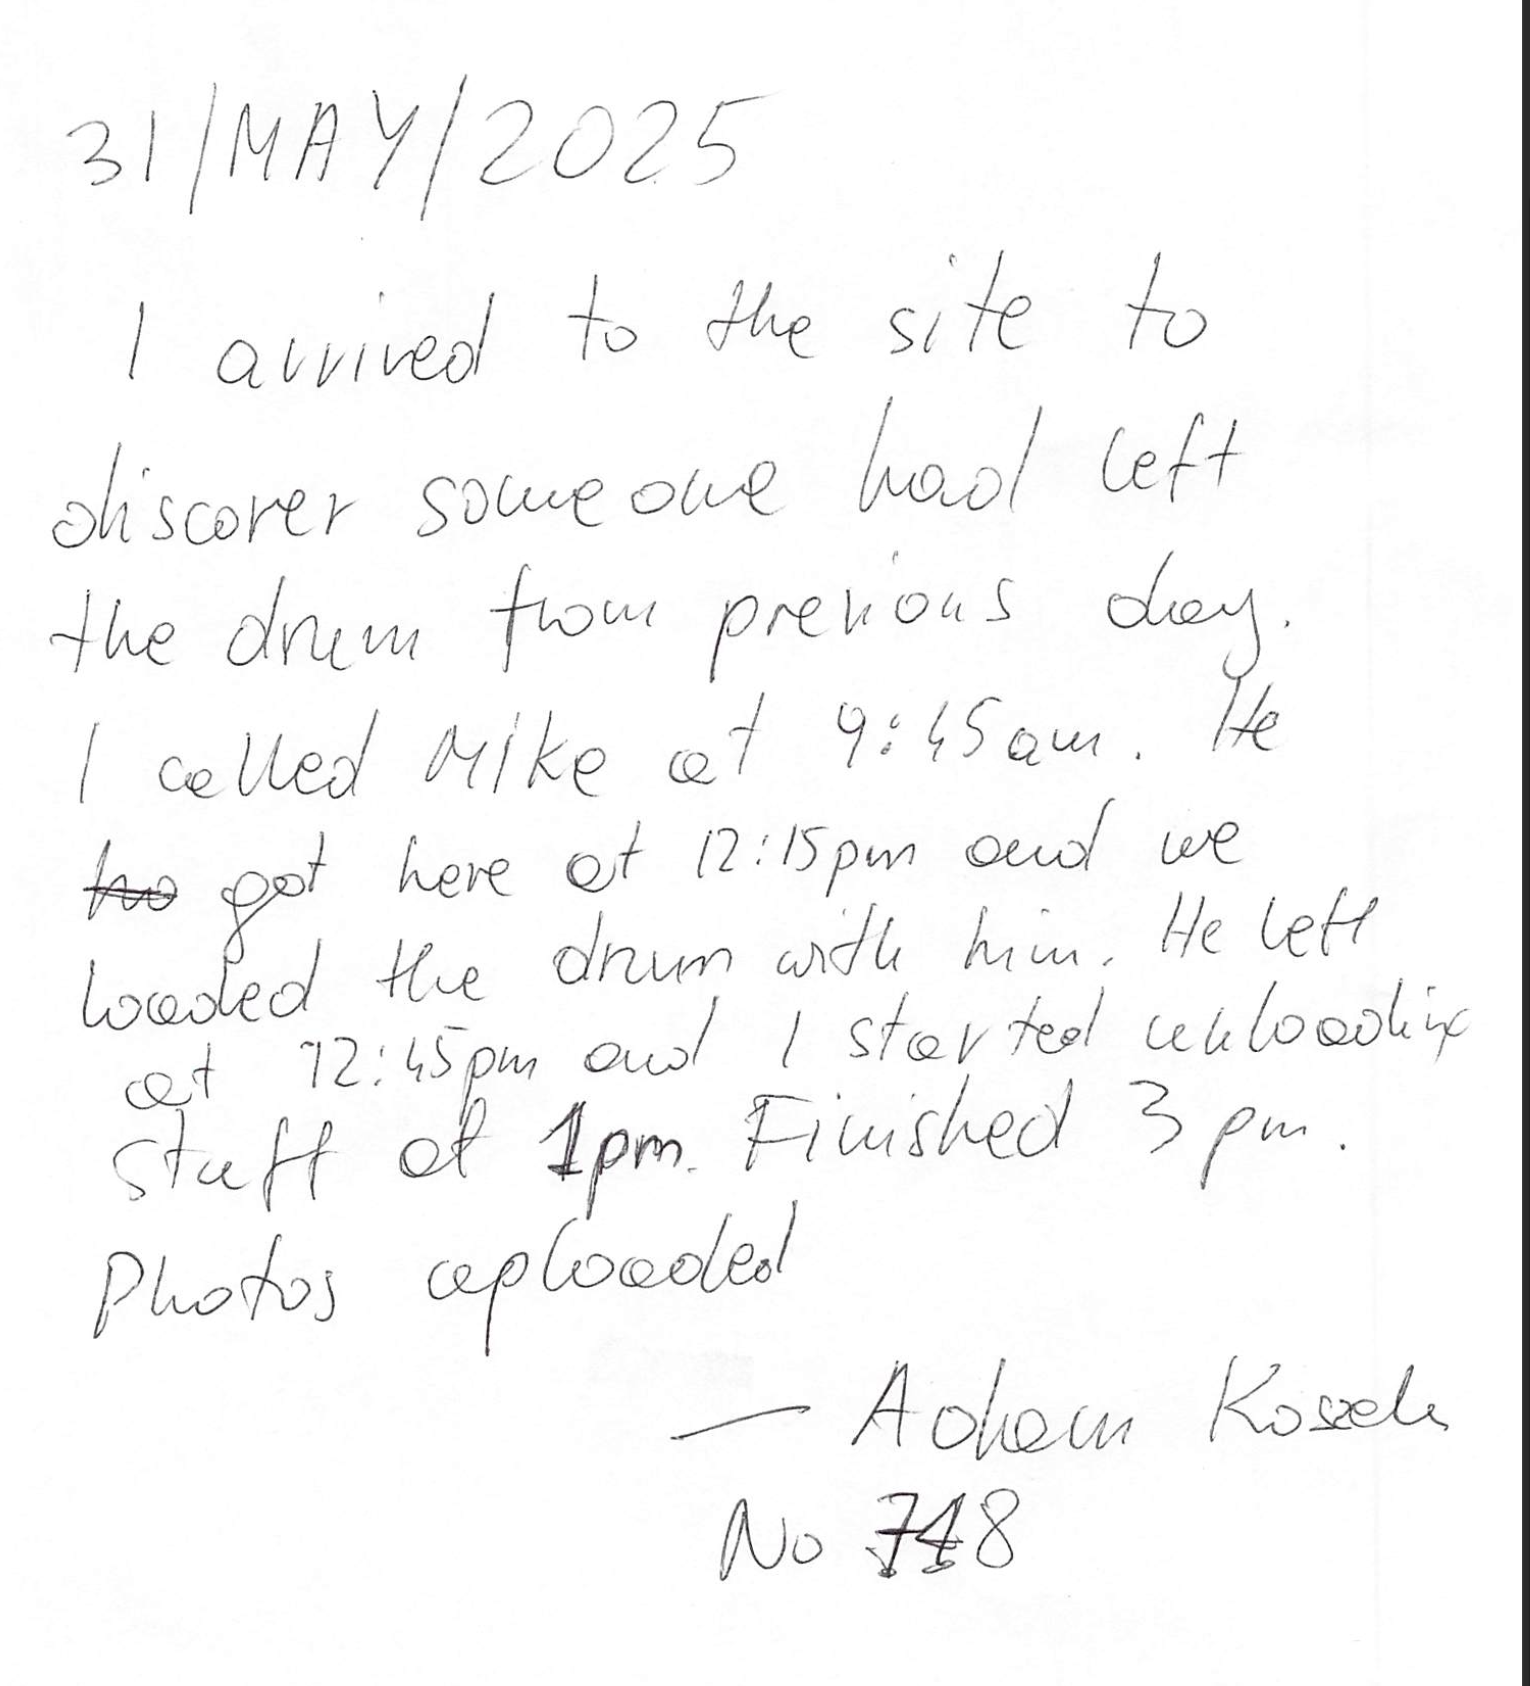 31/MAY/2025
I arrived to the site to
discover someone had left
the drum from previous day.
I called Mike at 9:45am. He
got here at 12:15pm and we
loaded the drum with him. He left
at 12:45pm and I started unloading
stuff at 1pm. Finished 3pm.
Photos uploaded
— Adam
No 748